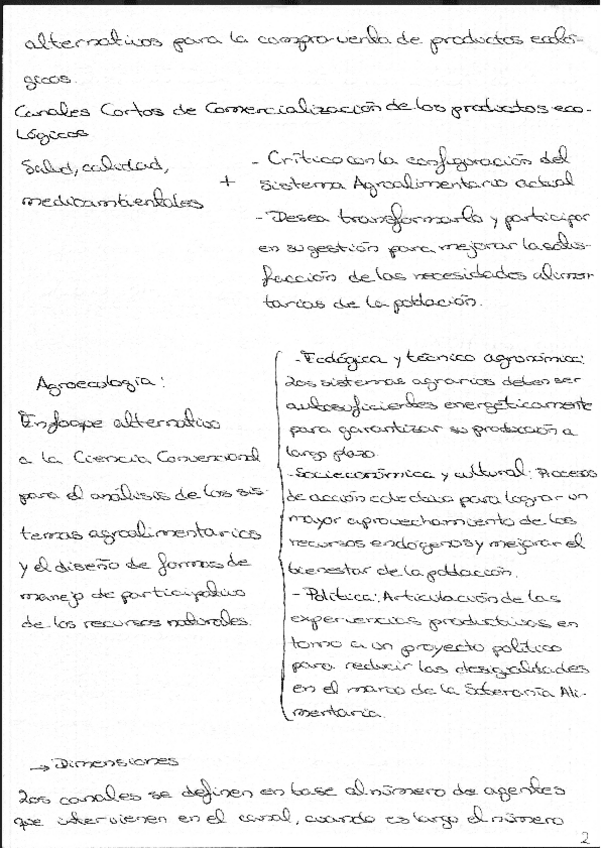 alternativos para la compra-venta de productos ecoló-
gicos.
Canales Cortos de Comercialización de los productos eco-
Lógicos
Salud, calidad,
medioambientales
+
- Crítico con la configuración del
Sistema Agroalimentario actual
- Desea transformarlo y participar
en su gestión para mejorar la satis-
facción de las necesidades alimen-
tarias de la población.
Agroecología:
Enfoque alternativo
a la Ciencia Convencional
para el análisis de los sis-
temas agroalimentarios
y el diseño de formas de
manejo de participativo
de los recursos naturales.
- Ecológica y técnico agronómica:
Los sistemas agrarios deben ser
autosuficientes energéticamente
para garantizar su producción a
largo plazo.
- Socieconómica y cultural: Procesos
de acción colectiva para lograr un
mayor aprovechamiento de los
recursos endógenos y mejorar el
bienestar de la población.
- Política: Articulación de las
experiencias productivas en
torno a un proyecto político
para reducir las desigualdades
en el marco de la Soberanía Ali-
mentaria.
→ Dimensiones
Los canales se definen en base al número de agentes
que intervienen en el canal, cuando es largo el número
2